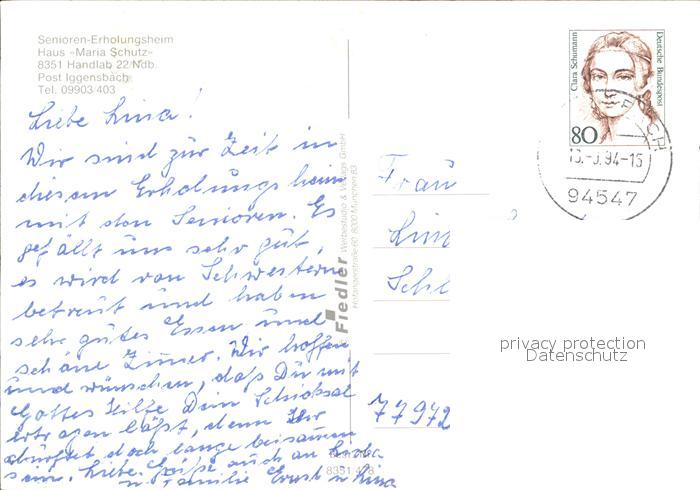 Senioren-Erholungsheim
Haus »Maria Schutz«
8351 Handlab 22/Ndb.
Post Iggensbach
Tel. 09903/403
Liebe Lina!
Wir sind zur Zeit in
diesem Erholungsheim
mit den Senioren. Es
gefällt uns sehr gut,
es wird von Schwestern
betreut und haben
sehr gutes Essen und
schöne Zimer. Wir hoffen
und wünschen, daß Du mit
Gottes Hilfe Dein Schicksal
ertragen läßt, denn Ihr
dürftet doch lange beisamen
sein. Liebe Grüße auch an
u. Familie Ernst u Lina
Fiedler Werbestudio & Verlags GmbH
8000 München 83
8351
Clara Schumann
Deutsche Bundespost
80
94-15
94547
Frau
Lin
Schl
77972
privacy protection
Datenschutz